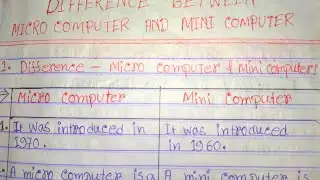 DIFFERENCE BETWEEN
MICRO COMPUTER AND MINI COMPUTER
1. Difference – Micro Computer & Mini Computer:
→ Micro Computer Mini Computer
1. It was introduced in It was introduced
1970. in 1960.
2. A micro computer is a A mini computer is